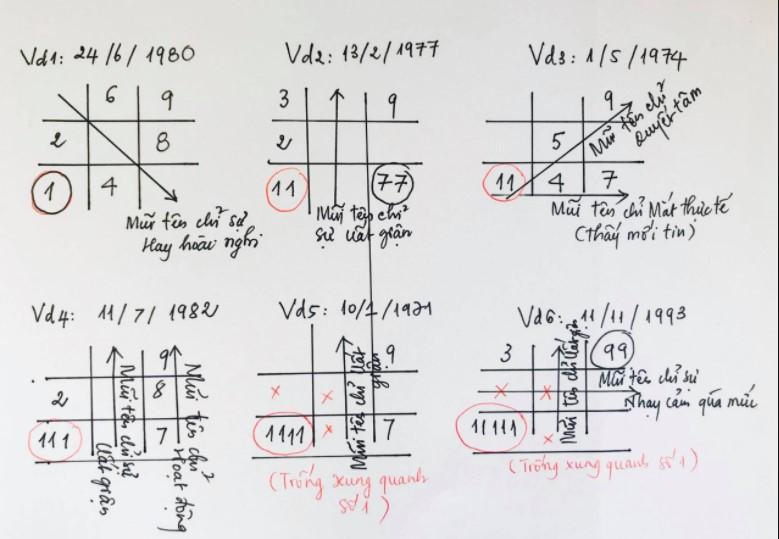 Vd1: 24/6/1980
6 9
2 8
1 4
Mũi tên chỉ sự
Hay hoài nghi
Vd2: 13/2/1977
3 9
2
11 77
Mũi tên chỉ
sự uất giận
Vd3: 1/5/1974
9
5
11 4 7
Mũi tên chỉ
Quyết tâm
Mũi tên chỉ Mất thực tế
(thấy mới tin)
Vd4: 11/7/1982
9
2 8
111 7
Mũi tên chỉ sự
Uất giận
Mũi tên chỉ
Hoạt động
Vd5: 10/1/1971
9
x x
1111 x 7
Mũi tên chỉ Uất
giận
(Trống xung quanh
số 1)
Vd6: 11/11/1993
3 99
x x
11111 x
Mũi tên chỉ Uất giận
Mũi tên chỉ sự
Nhạy cảm quá mức
(Trống xung quanh số 1)